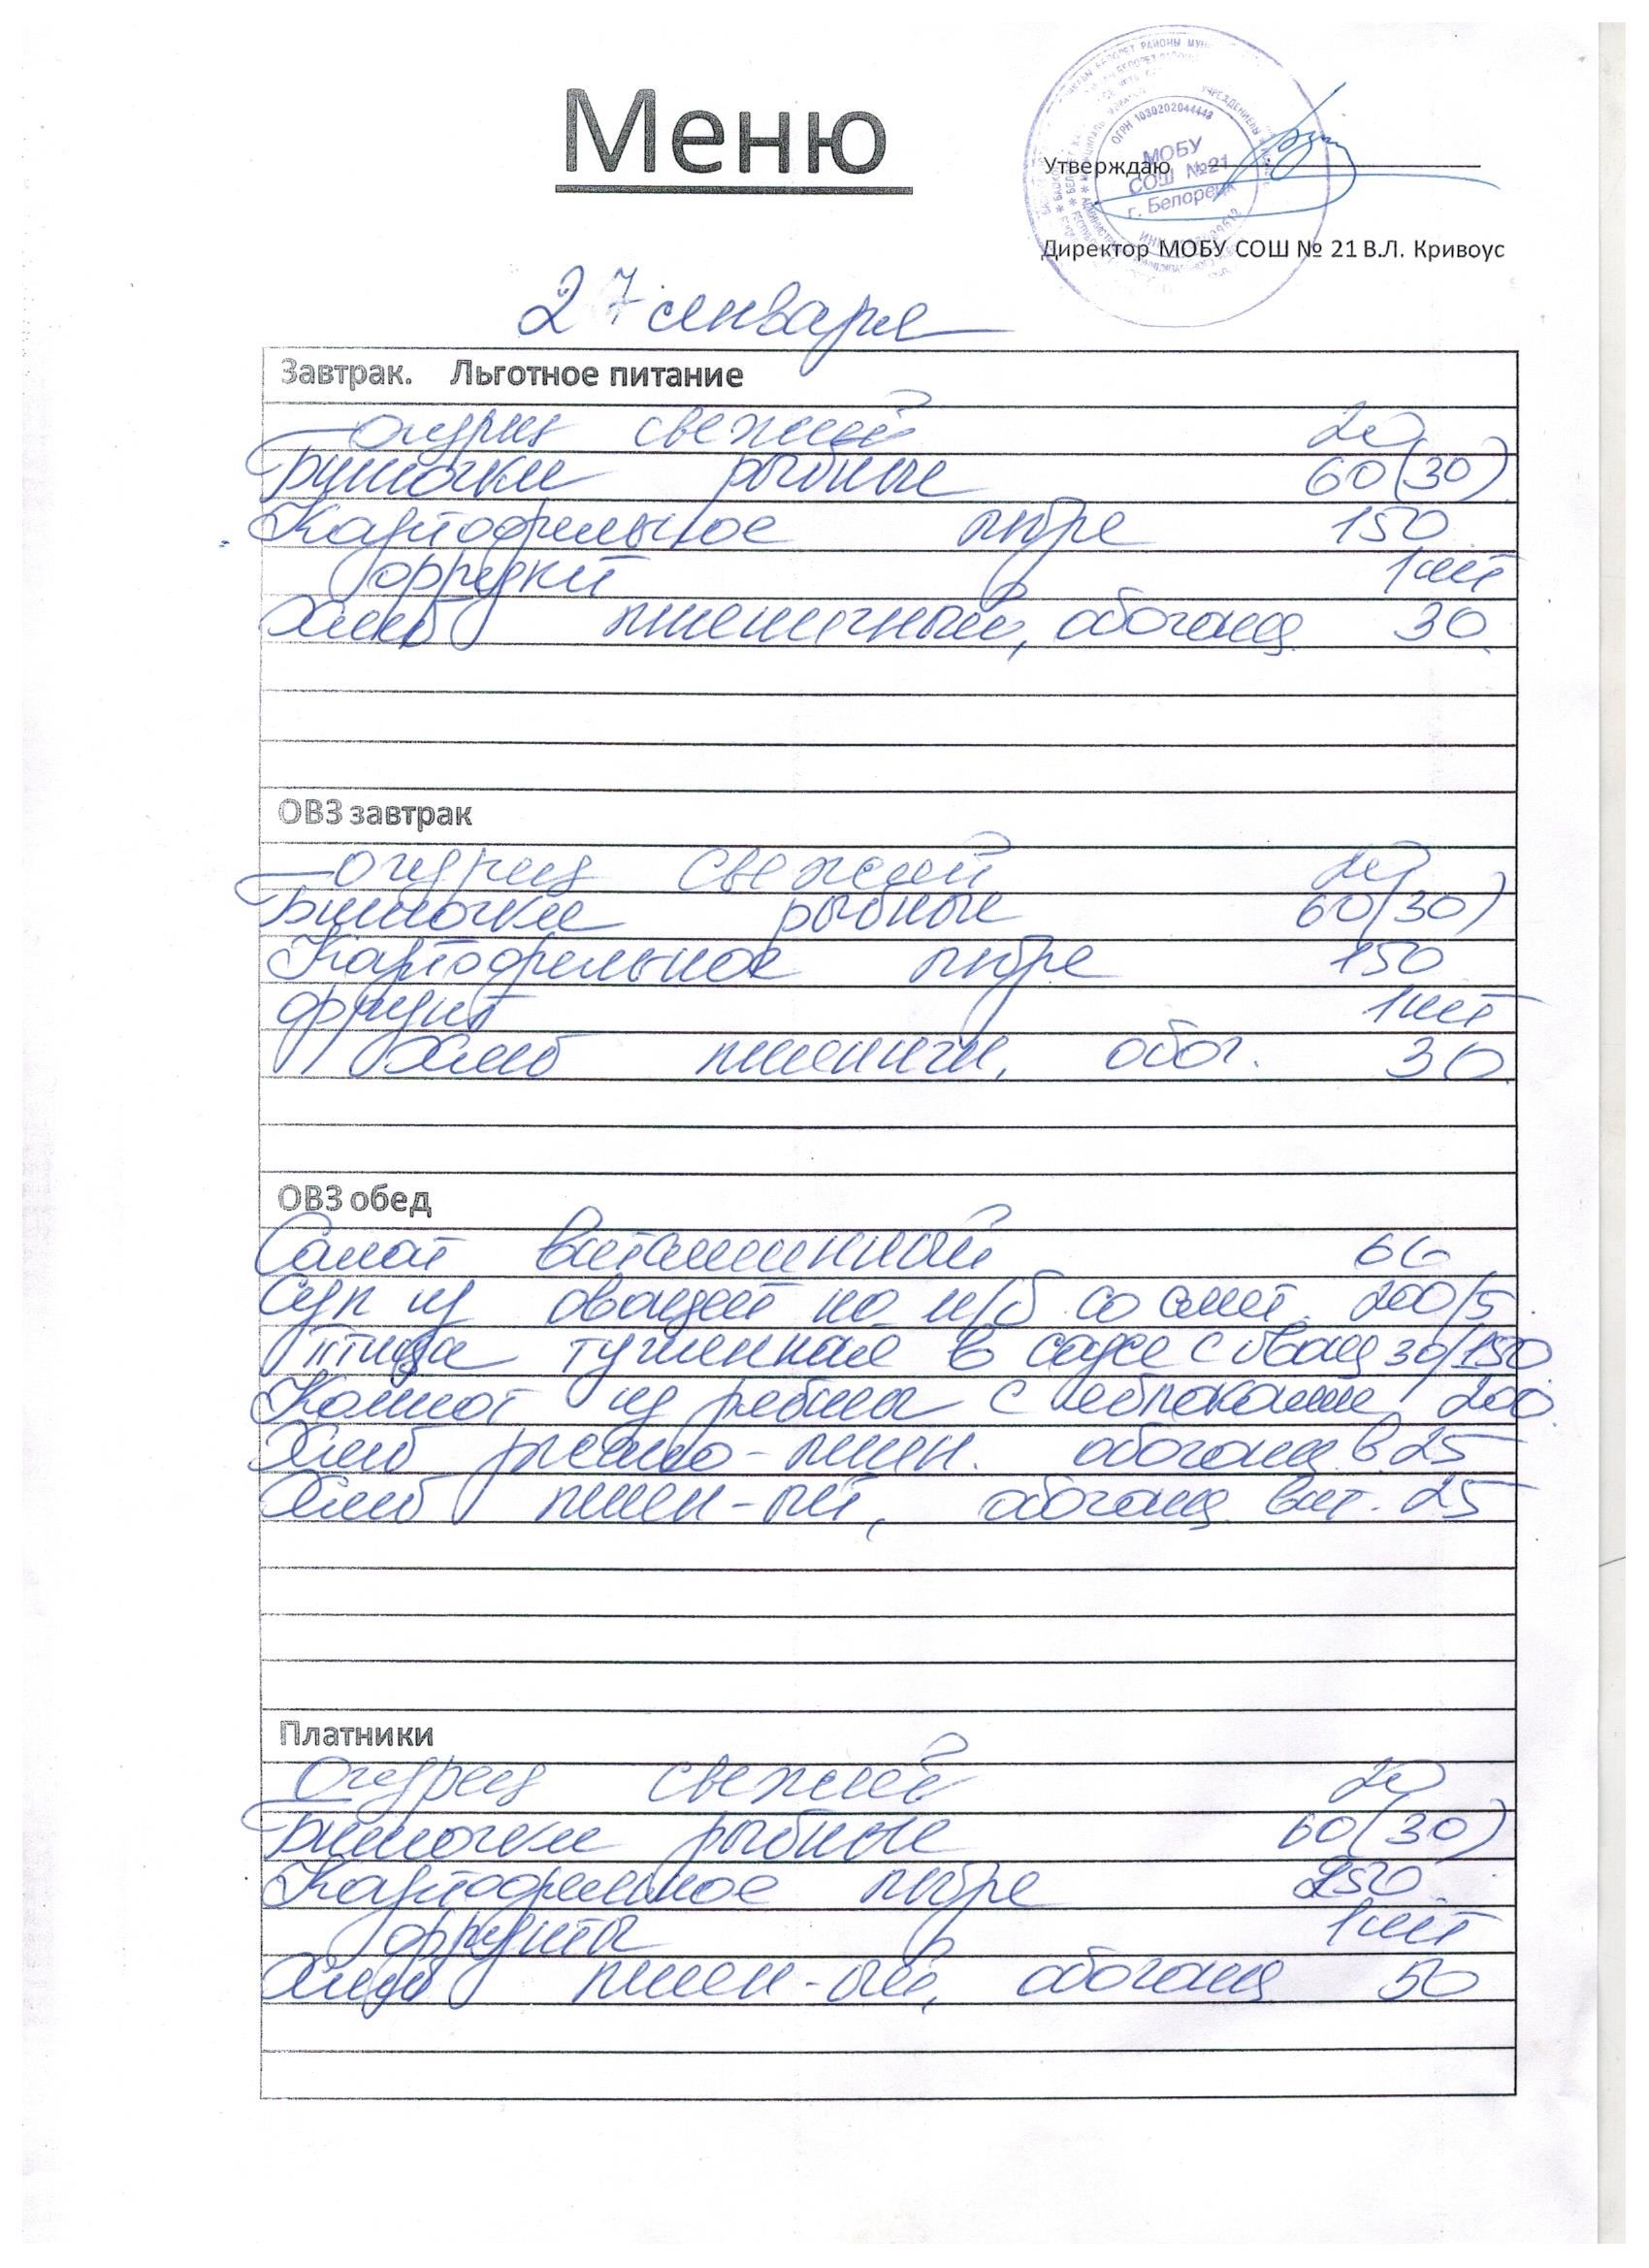 Меню
ОГРН 1030202044448
МОБУ
СОШ №21
г. Белорецк
Утверждаю
Директор МОБУ СОШ № 21 В.Л. Кривоус
27 января
Завтрак. Льготное питание
Огурец свежий 20
Биточки рыбные 60(30)
Картофельное пюре 150
фрукт 1шт
Хлеб пшеничный, обогащ. 30
ОВЗ завтрак
Огурец свежий 20
Биточки рыбные 60(30)
Картофельное пюре 150
фрукт 1шт
Хлеб пшенич, обог. 30
ОВЗ обед
Салат витаминный 60
Суп из овощей на м/б со смет. 200/5
Птица тушенная в соусе с овощ 30/150
Компот из рябины с яблоками 200
Хлеб ржано-пшен. обогащ. в. 25
Хлеб пшен-ый, обогащ. вит. 25
Платники
Огурец свежий 20
Биточки рыбные 60(30)
Картофельное пюре 250
фрукты 1шт
Хлеб пшен-ый, обогащ 50